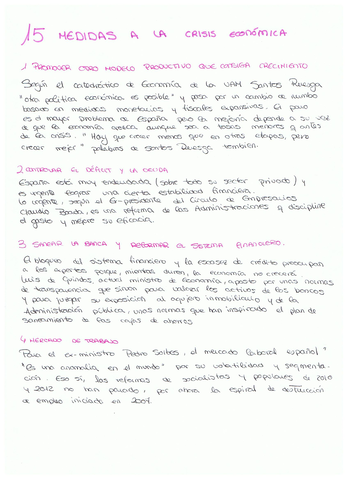 15 MEDIDAS A LA CRISIS ECONÓMICA
1 PROMOVER OTRO MODELO PRODUCTIVO QUE CONSIGA CRECIMIENTO
Según el catedrático de Economía de la UAM Santos Ruesga
"otra política económica es posible" y pasa por un cambio de rumbo
basado en medidas monetarias y fiscales expansivas. El paro
es el mayor problema de España pero la mejoría depende a su vez
de que la economía crezca, aunque sea a tasas menores q antes
de la crisis. "Hay que crecer menos que en otras etapas, pero
crecer mejor" palabras de Santos Ruesga también.
2 CONTROLAR EL DÉFICIT Y LA DEUDA
España está muy endeudada (sobre todo su sector privado) y
es urgente lograr una cierta estabilidad financiera.
Lo urgente, según el Ex-presidente del Círculo de Empresarios
Claudio Boada, es una reforma de las Administraciones q discipline
el gasto y mejore su eficacia.
3 SANEAR LA BANCA Y REFORMAR EL SISTEMA FINANCIERO.
El bloqueo del sistema financiero y la escasez de crédito preocupan
a los expertos porque, mientras duren, la economía no crecerá
Luis de Guindos, actual ministro de Economía, apostó por unas normas
de transparencia que sirvan para valorar los activos de los bancos
y para juzgar su exposición al agujero inmobiliario y de la
Administración pública, unas normas que han inspirado el plan de
saneamiento de las cajas de ahorros
4 MERCADO DE TRABAJO
Para el ex-ministro Pedro Solbes, el mercado laboral español "
"Es una anomalía en el mundo" por su volatilidad y segmenta-
ción. Eso sí, las reformas de socialistas y populares de 2010
y 2012 no han parado, por ahora la espiral de destrucción
de empleo iniciada en 2007.